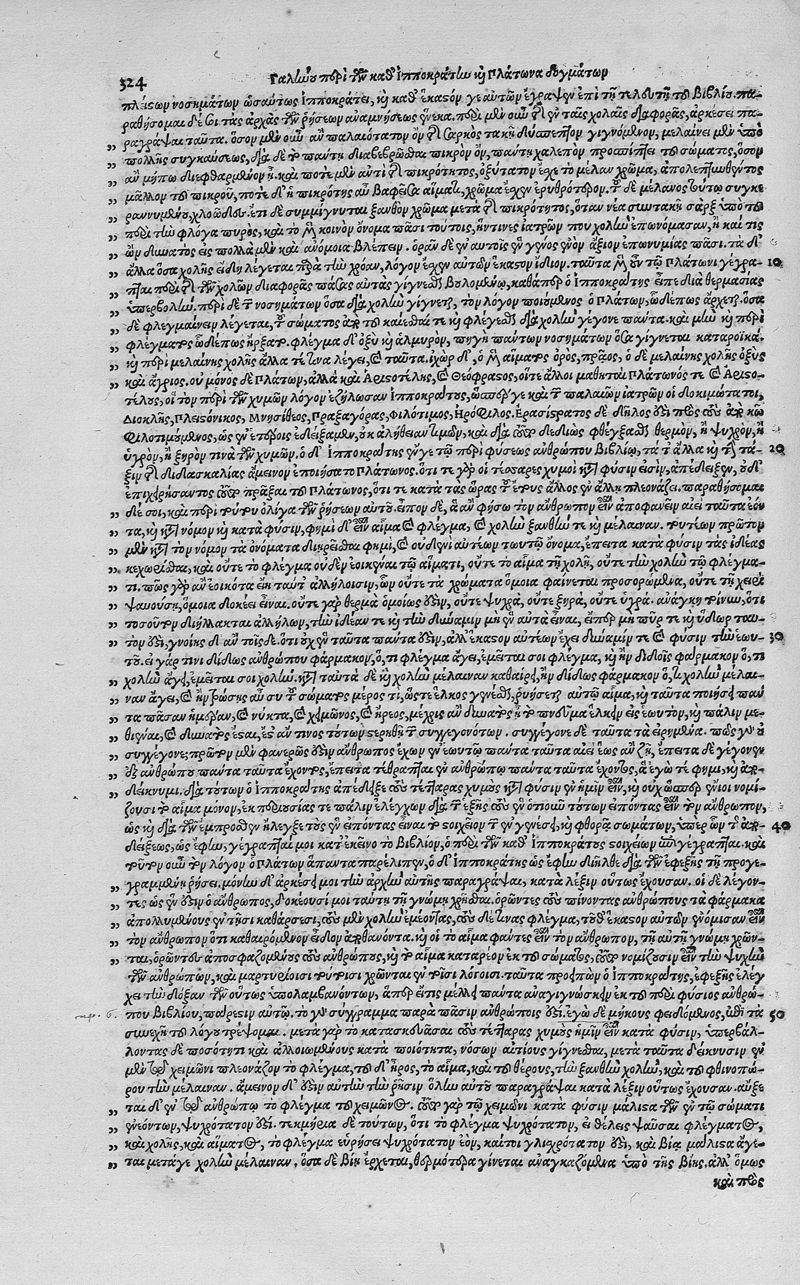 324 Γαληνοῦ περὶ τῶν καθ' Ἱπποκράτην καὶ Πλάτωνα δογμάτων
πλείστων νοσημάτων ὡσαύτως Ἱπποκράτει, καὶ καθ' ἕκαστόν γε αὐτῶν ἔγραψεν ἐπὶ τῇ τελευτῇ τοῦ βιβλίου. πα-
ραθήσομαι δέ σοι τὰς ἀρχὰς τῶν ῥήσεων ἀναμνήσεως ἕνεκα. περὶ μὲν οὖν τῆς ἐν ταῖς χολαῖς διαφορᾶς, ἀρκέσει πα-
ραγράψαι ταῦτα. ὅσον μὲν οὖν ἂν παλαιότατον ὂν τῆς σαρκὸς τακῇ δύσπεπτον γιγνόμενον, μελαίνει μὲν ὑπὸ
πολλῆς συγκαύσεως, διὰ δὲ τὸ πάντῃ διαβεβρῶσθαι πικρὸν ὂν, παντὶ χαλεπὸν προσπίπτει τοῦ σώματος, ὅσον
ἂν μήπω διεφθαρμένον ᾖ. καὶ ποτὲ μὲν ἀντὶ τῆς πικρότητος, ὀξύτατον ἔσχε τὸ μέλαν χρῶμα, ἀπολεπτυνθέντος
μᾶλλον τοῦ πικροῦ, ποτὲ δ' ἡ πικρότης αὖ βαφεῖσα αἵματι, χρῶμα ἔσχεν ἐρυθρότερον. τοῦ δὲ μέλανος τούτῳ συγκε-
ραννυμένου, χλοῶδες. ἔτι δὲ συμμίγνυται ξανθὸν χρῶμα μετὰ τῆς πικρότητος, ὅταν νέα συντακῇ σὰρξ ὑπὸ τοῦ
περὶ τὴν φλόγα πυρὸς, καὶ τὸ μὲν κοινὸν ὄνομα πᾶσι τούτοις, ἤ τινες ἰατρῶν που χολὴν ἐπωνόμασαν, ἢ καί τις
ὢν δυνατὸς εἰς πολλὰ μὲν καὶ ἀνόμοια βλέπειν. ὁρᾶν δὲ ἐν αὐτοῖς ἓν γένος ἐνὸν ἄξιον ἐπωνυμίας πᾶσι. τὰ δ'
ἄλλα ὅσα χολῆς εἴδη λέγεται παρὰ τὴν χρόαν, λόγον ἔσχεν αὐτῶν ἕκαστον ἴδιον. ταῦτα μὲν ἐν τῷ Πλάτωνι γέγρα- 10
πται περὶ τῆς τῶν χολῶν διαφορᾶς πάσας αὐτὰς γίγνεσθαι βουλομένῳ, καθάπερ ὁ Ἱπποκράτης εἶπε διὰ θερμασίας
ὑπερβολήν. περὶ δὲ τῶν νοσημάτων ὅσα διὰ χολὴν γίγνεται, τὸν λόγον ποιούμενος ὁ Πλάτων, ὧδέ πως ἄρχεται. ὅσα
δὲ φλεγμαίνειν λέγεται, τοῦ σώματος ἀπὸ τοῦ καίεσθαί τε καὶ φλέγεσθαι διὰ χολὴν γέγονε πάντα. καὶ μὴν καὶ περὶ
φλέγματος ὧδέ πως ἤρξατο. φλέγμα δ' ὀξὺ καὶ ἁλμυρὸν, πηγὴ πάντων νοσημάτων ὅσα γίγνεται καταῤῥοϊκά.
καὶ περὶ μελαίνης χολῆς ἄλλα τέ τινα λέγει, καὶ ταῦτα. ἰχὼρ δ', ὁ μὲν αἵματος ὀρὸς, πρᾶος, ὁ δὲ μελαίνης χολῆς ὀξύς
καὶ ἄγριος. οὐ μόνος δὲ Πλάτων, ἀλλὰ καὶ Ἀριστοτέλης, καὶ Θεόφραστος, οἵ τε ἄλλοι μαθηταὶ Πλάτωνός τε καὶ Ἀριστο-
τέλους, οἳ τὸν περὶ τῶν χυμῶν λόγον ἐζήλωσαν Ἱπποκράτους, ὥσπερ γε καὶ τῶν παλαιῶν ἰατρῶν οἱ δοκιμώτατοι,
Διοκλῆς, Πλειστόνικος, Μνησίθεος, Πραξαγόρας, Φιλότιμος, Ἡρόφιλος. Ἐρασίστρατος δὲ δῆλός ἐστί πως οὐκ ἀπ' αὐτῶν
φιλοτιμούμενος, ὡς ἐν ἑτέροις ἐδείξαμεν, οὐκ ἀλήθειαν τιμῶν, καὶ διὰ τοῦτο δεδιὼς φθέγξασθαι θερμὸν, ἢ ψυχρὸν, ἢ
ὑγρὸν, ἢ ξηρόν τινα τῶν χυμῶν. ὁ δ' Ἱπποκράτης ἔν γε τῷ περὶ φύσεως ἀνθρώπου βιβλίῳ, τά τ' ἄλλα καὶ τὴν τά- 20
ξιν τῆς διδασκαλίας ἄμεινον ἐποιήσατο Πλάτωνος. ὅτι τε γὰρ οἱ τέσσαρες χυμοὶ κατὰ φύσιν εἰσὶν, ἀπέδειξεν, οὐδ'
ἐπιχειρήσαντος τοῦτο πρᾶξαι τοῦ Πλάτωνος, ὅτι τε κατὰ τὰς ὥρας τοῦ ἔτους ἄλλος ἐν ἄλλῃ πλεονάζει. παραθήσομαι
δέ σοι, καὶ περὶ τούτου ὀλίγα τῶν ῥήσεων αὐτοῦ. εἶπον δὲ, ἃ ἂν φήσω τὸν ἄνθρωπον εἶναι ἀποφανεῖν αἰεὶ ταῦτα ἐόν-
τα, καὶ κατὰ νόμον καὶ κατὰ φύσιν, φημὶ δ' εἶναι αἷμα καὶ φλέγμα, καὶ χολὴν ξανθήν τε καὶ μέλαιναν. τουτέων πρῶτον
μὲν κατὰ τὸν νόμον τὰ ὀνόματα διωρίσθαι φημὶ, καὶ οὐδενὶ αὐτέων τωυτὸ ὄνομα, ἔπειτα κατὰ φύσιν τὰς ἰδέας
κεχωρίσθαι, καὶ οὔτε τὸ φλέγμα οὐδὲν ἐοικέναι τῷ αἵματι, οὔτε τὸ αἷμα τῇ χολῇ, οὔτε τὴν χολὴν τῷ φλέγμα-
τι. πῶς γὰρ ἂν ἐοικότα εἴη ταῦτ' ἀλλήλοισιν, ὧν οὔτε τὰ χρώματα ὅμοια φαίνεται προσορώμενα, οὔτε τῇ χειρὶ
ψαυούσῃ, ὅμοια δοκέει εἶναι. οὔτε γὰρ θερμὰ ὁμοίως ἐστὶν, οὔτε ψυχρὰ, οὔτε ξηρὰ, οὔτε ὑγρά. ἀνάγκη τοίνυν, ὅτι
τοσοῦτον διήλλακται ἀλλήλων, τὴν ἰδέαν τε καὶ τὴν δύναμιν μὴ ἓν αὐτὰ εἶναι, εἴπερ μὴ πῦρ τε καὶ ὕδωρ ταυ-
τόν ἐστι, γνοίης δ' ἂν τοῖσδε. ὅτι οὐχ ἓν ταῦτα πάντα ἐστὶν, ἀλλ' ἕκαστον αὐτέων ἔχει δύναμίν τε καὶ φύσιν τὴν ἑωυ- 30
τοῦ. εἰ γάρ τινι διδῷς ἀνθρώπου φάρμακον, ὅ, τι φλέγμα ἄγει, ἐμεῖταί σοι φλέγμα, καὶ ἢν διδοῖς φάρμακον ὅ, τι
χολὴν ἄγει, ἐμεῖταί σοι χολήν. κατὰ ταῦτα δὲ καὶ χολὴν μέλαιναν καθαίρει, ἢν διδῷς φάρμακον ὅ, τι χολὴν μέλαι-
ναν ἄγει, καὶ ἢν τρώσῃς αὐτοῦ τοῦ σώματος μέρος τι, ὥστε ἕλκος γενέσθαι, ῥυήσεται αὐτῷ αἷμα, καὶ ταῦτα ποιήσει παν-
τα πᾶσαν ἡμέραν, καὶ νύκτα, καὶ χειμῶνος, καὶ ἦρος, μέχρις ἂν δυνατὸς ᾖ τὸ πνεῦμα ἕλκειν εἰς ἑωυτὸν, καὶ πάλιν με-
θιέναι, καὶ δυνατὸς ἔσται, ἔστ' ἄν τινος τούτων στερηθῇ τῶν συγγεγονότων. συγγέγονε δὲ ταῦτα τὰ εἰρημένα. πῶς γὰρ οὐ
συγγέγονε; πρῶτον μὲν φανερῶς ἐστὶν ἄνθρωπος ἔχων ἐν ἑωυτῷ πάντα ταῦτα αἰεὶ ἕως ἂν ζῇ, ἔπειτα δὲ γέγονεν
ἐξ ἀνθρώπου πάντα ταῦτα ἔχοντος, ἔπειτα τέθραπται ἐν ἀνθρώπῳ πάντα ταῦτα ἔχοντι, ἃ ἐγώ τε φημὶ, καὶ ἀπο-
δείκνυμι. διὰ τούτων ὁ Ἱπποκράτης ἀπέδειξε τοὺς τέτταρας χυμοὺς κατὰ φύσιν ἐν ἡμῖν εἶναι, καὶ οὐχ ὥσπερ ἔνιοι νομί-
ζουσι τὸ αἷμα μόνον, ἐκ περιουσίας τε πάλιν ἐλέγχων διὰ τῶν ἑξῆς ἓν ὁτιοῦν τούτων εἰπόντας εἶναι τὸν ἄνθρωπον,
ὡς καὶ διὰ τῶν ἔμπροσθεν ἤλεγξε τοὺς ἓν εἰπόντας εἶναι τὸ στοιχεῖον τῶν ἐν γενέσει, καὶ φθορᾷ σωμάτων, ὑπὲρ ὧν τῆς ἀπο- 40
δείξεως, ὡς ἔφην, γέγραπταί μοι κατ' ἐκεῖνο τὸ βιβλίον, ὃ περὶ τῶν καθ' Ἱπποκράτους στοιχείων ἐπιγέγραπται. καὶ
τοῦτον οὖν τὸν λόγον ὁ Πλάτων ἅπαντα παρέλιπεν, ὁ δ' Ἱπποκράτης ὡς ἔφην διῆλθε διὰ τῶν ἐφεξῆς τῇ προγε-
γραμμένῃ ῥήσει. μόνην δ' ἀρκέσει μοι τὴν ἀρχὴν αὐτῆς παραγράψαι, κατὰ λέξιν οὕτως ἔχουσαν. οἱ δὲ λέγον-
τες ὡς ἕν ἐστιν ὁ ἄνθρωπος, δοκέουσί μοι ταύτῃ τῇ γνώμῃ χρῆσθαι. ὁρῶντες τοὺς πίνοντας ἀνθρώπους τὰ φάρμακα
ἀπολλυμένους ἐν τῇσι καθάρσεσι, τοὺς μὲν χολὴν ἐμέοντας, τοὺς δέ τινας φλέγμα, τοῦθ' ἕκαστον αὐτῶν ἐνόμισαν εἶναι
τὸν ἄνθρωπον ὅτι καθαιρόμενον εἶδον ἀποθανόντα. καὶ οἱ τὸ αἷμα φάντες εἶναι τὸν ἄνθρωπον, τῇ αὐτῇ γνώμῃ χρῶν-
ται, ὁρῶντες ἀποσφαζομένους τοὺς ἀνθρώπους, καὶ τὸ αἷμα καταρέον ἐκ τοῦ σώματος, τοῦτο νομίζουσιν εἶναι τὴν ψυχὴν
τῶν ἀνθρώπων, καὶ μαρτυρίοισι τούτοισι χρῶνται ἐν τοῖσι λόγοισι. ταῦτα προειπὼν ὁ Ἱπποκράτης, ἐφεξῆς ἐλέγ-
χει τὴν δόξαν τῶν οὕτως ὑπολαμβανόντων, ἅπερ εἴ τις μέλλει πάντα ἀναγιγνώσκειν ἐκ τοῦ περὶ φύσιος ἀνθρώ-
που βιβλίου, πάρεστιν αὐτῷ. τὸ γὰρ σύγγραμμα παρὰ πᾶσιν ἀνθρώποις ἐστί. ἐγὼ δὲ μήκους φειδόμενος, ἐπὶ τὰ 50
συνεχῆ τοῦ λόγου τρέψομαι. μετὰ γὰρ τὸ κατασκευάσαι τοὺς τέτταρας χυμοὺς ἡμῖν εἶναι κατὰ φύσιν, ὑπερβάλ-
λοντας δὲ ποσότητι καὶ ἀλλοιωμένους κατὰ ποιότητα, νόσων αἰτίους γίγνεσθαι, μετὰ ταῦτα δείκνυσιν ἐν
μὲν τῷ χειμῶνι πλεονάζον τὸ φλέγμα, τοῦ δ' ἦρος, τὸ αἷμα, καὶ τοῦ θέρους, τὴν ξανθὴν χολὴν, καὶ τοῦ φθινοπώ-
ρου τὴν μέλαιναν. ἄμεινον δ' ἐστὶν αὐτὴν τὴν ῥῆσιν ὅλην αὐτοῦ παραγράψαι κατὰ λέξιν οὕτως ἔχουσαν. αὔξε-
ται δ' ἐν τῷ ἀνθρώπῳ τὸ φλέγμα τοῦ χειμῶνος. τοῦτο γὰρ τῷ χειμῶνι κατὰ φύσιν μάλιστα τῶν ἐν τῷ σώματι
ἐνεόντων, ψυχρότατόν ἐστι. τεκμήρια δὲ τούτων, ὅτι τὸ φλέγμα ψυχρότατον, εἰ θέλεις ψαῦσαι φλέγματος,
καὶ χολῆς, καὶ αἵματος, τὸ φλέγμα εὑρήσεις ψυχρότατον ἐὸν, καίτοι γλισχρότατόν ἐστι, καὶ βίᾳ μάλιστα ἄγε-
ται μετά γε χολὴν μέλαιναν. ὅσα δὲ βίῃ ἔρχεται, θερμότερα γίνεται ἀναγκαζόμενα ὑπὸ τῆς βίης. ἀλλ' ὅμως
καὶ πρὸς